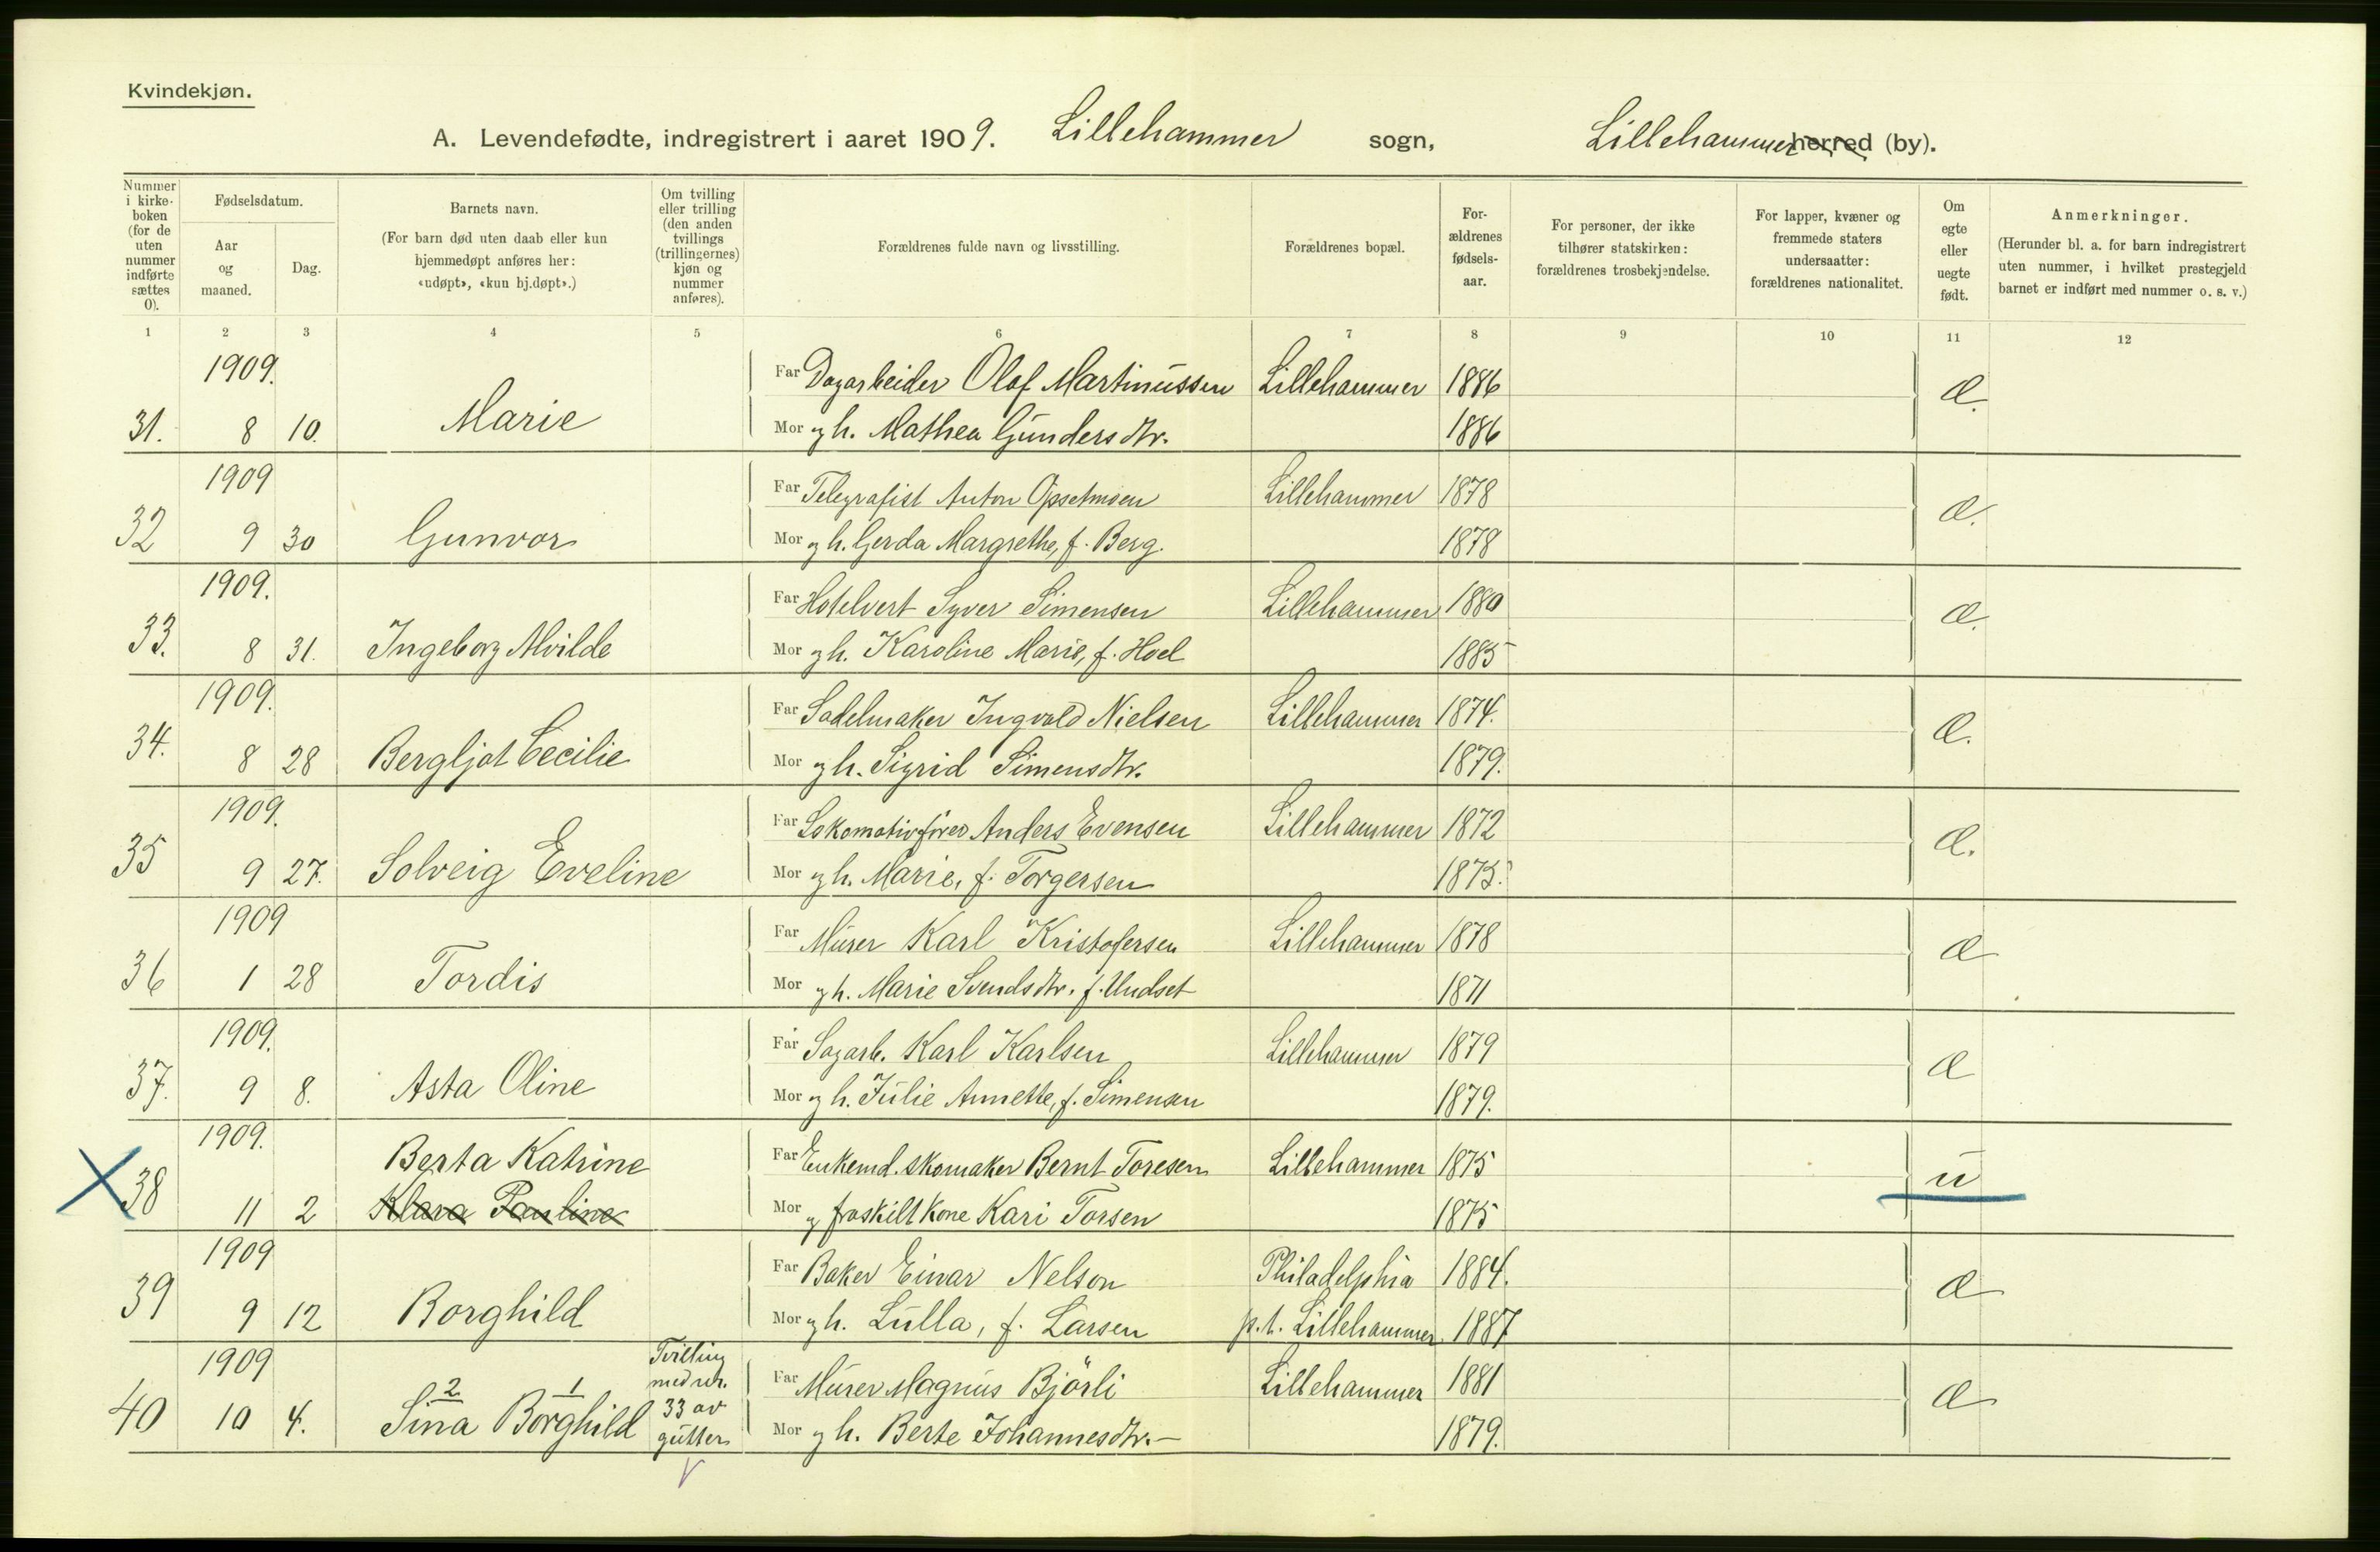 Kvindekjøn.
A. Levendefødte, indregistrert i aaret 1909. Lillehammer sogn, Lillehammer herred (by).
Nummer i kirkeboken (for de uten nummer indførte sættes 0).
Fødselsdatum.
Aar og maaned.
Dag.
Barnets navn.
(For barn død uten daab eller kun hjemmedøpt anføres her: «udøpt», «kun hj.døpt».)
Om tvilling eller trilling (den anden tvillings (trillingernes) kjøn og nummer anføres).
Forældrenes fulde navn og livsstilling.
Forældrenes bopæl.
Forældrenes fødselsaar.
For personer, der ikke tilhører statskirken: forældrenes trosbekjendelse.
For lapper, kvæner og fremmede staters undersaatter: forældrenes nationalitet.
Om egte eller uegte født.
Anmerkninger.
(Herunder bl. a. for barn indregistrert uten nummer, i hvilket prestegjeld barnet er indført med nummer o. s. v.)
1 2 3 4 5 6 7 8 9 10 11 12
1909. Far Dagarbeider Olaf Martinussen Lillehammer 1886 Æ.
31. 8 10. Marie Mor og h. Mathea Gundersdtr. 1886
1909 Far Telegrafist Anton Opsetmoen Lillehammer 1878 Æ.
32 9 30 Gunvor Mor og h. Gerda Margrethe, f. Berg. 1878
1909. Far Hotelvert Syver Simensen Lillehammer 1880 Æ.
33. 8 31. Ingeborg Alvilde Mor og h. Karoline Marie, f. Hoel 1885
1909. Far Sadelmaker Ingvald Nielsen Lillehammer 1874. Æ.
34. 8 28 Bergljot Cecilie Mor og h. Sigrid Simensdtr. 1879.
1909. Far Lokomotivfører Anders Evensen Lillehammer 1872 Æ.
35 9 27. Solveig Eveline Mor og h. Marie, f. Torgersen 1875.
1909 Far Murer Karl Kristofersen Lillehammer 1878 Æ
36 1 28 Tordis Mor og h. Marie Svendsdtr. f. Undset 1871
1909. Far Sagarb. Karl Karlsen Lillehammer 1879 Æ
37. 9 8. Asta Oline Mor og h. Julie Annette, f. Simensen 1879.
1909. Berta Katrine Far Enkemd. skomaker Bernt Toresen Lillehammer 1875 u
38 11 2 Klara Pauline Mor og fraskilt kone Kari Torsen 1875
1909 Far Baker Einar Nelson Philadelphia 1884. Æ
39 9 12 Borghild Mor og h. Lulla, f. Larsen p.t. Lillehammer 1887
1909 Tvilling med nr. 33 av gutter Far Murer Magnus Bjørli Lillehammer 1881 Æ
2 1
40 10 4. Sina Borghild Mor og h. Berte Johannesdtr. 1879.